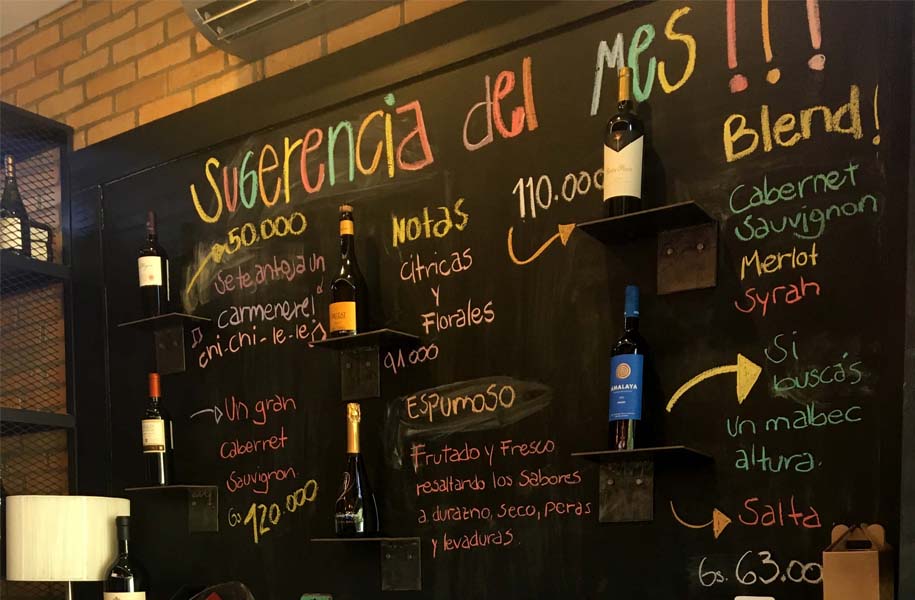 Sugerencia del Mes!!!
50.000
Se te antoja un
carmenere!
chi-chi-le-le
Un gran
cabernet
Sauvignon.
Gs 120.000
Notas
Cítricas
y
Florales
91.000
Espumoso
Frutado y Fresco
resaltando los Sabores
a durazno, seco, peras
y levaduras.
110.000
Blend!
Cabernet
Sauvignon
Merlot
Syrah
AMALAYA
Si
buscás
un malbec
altura.
Salta
Gs. 63.00